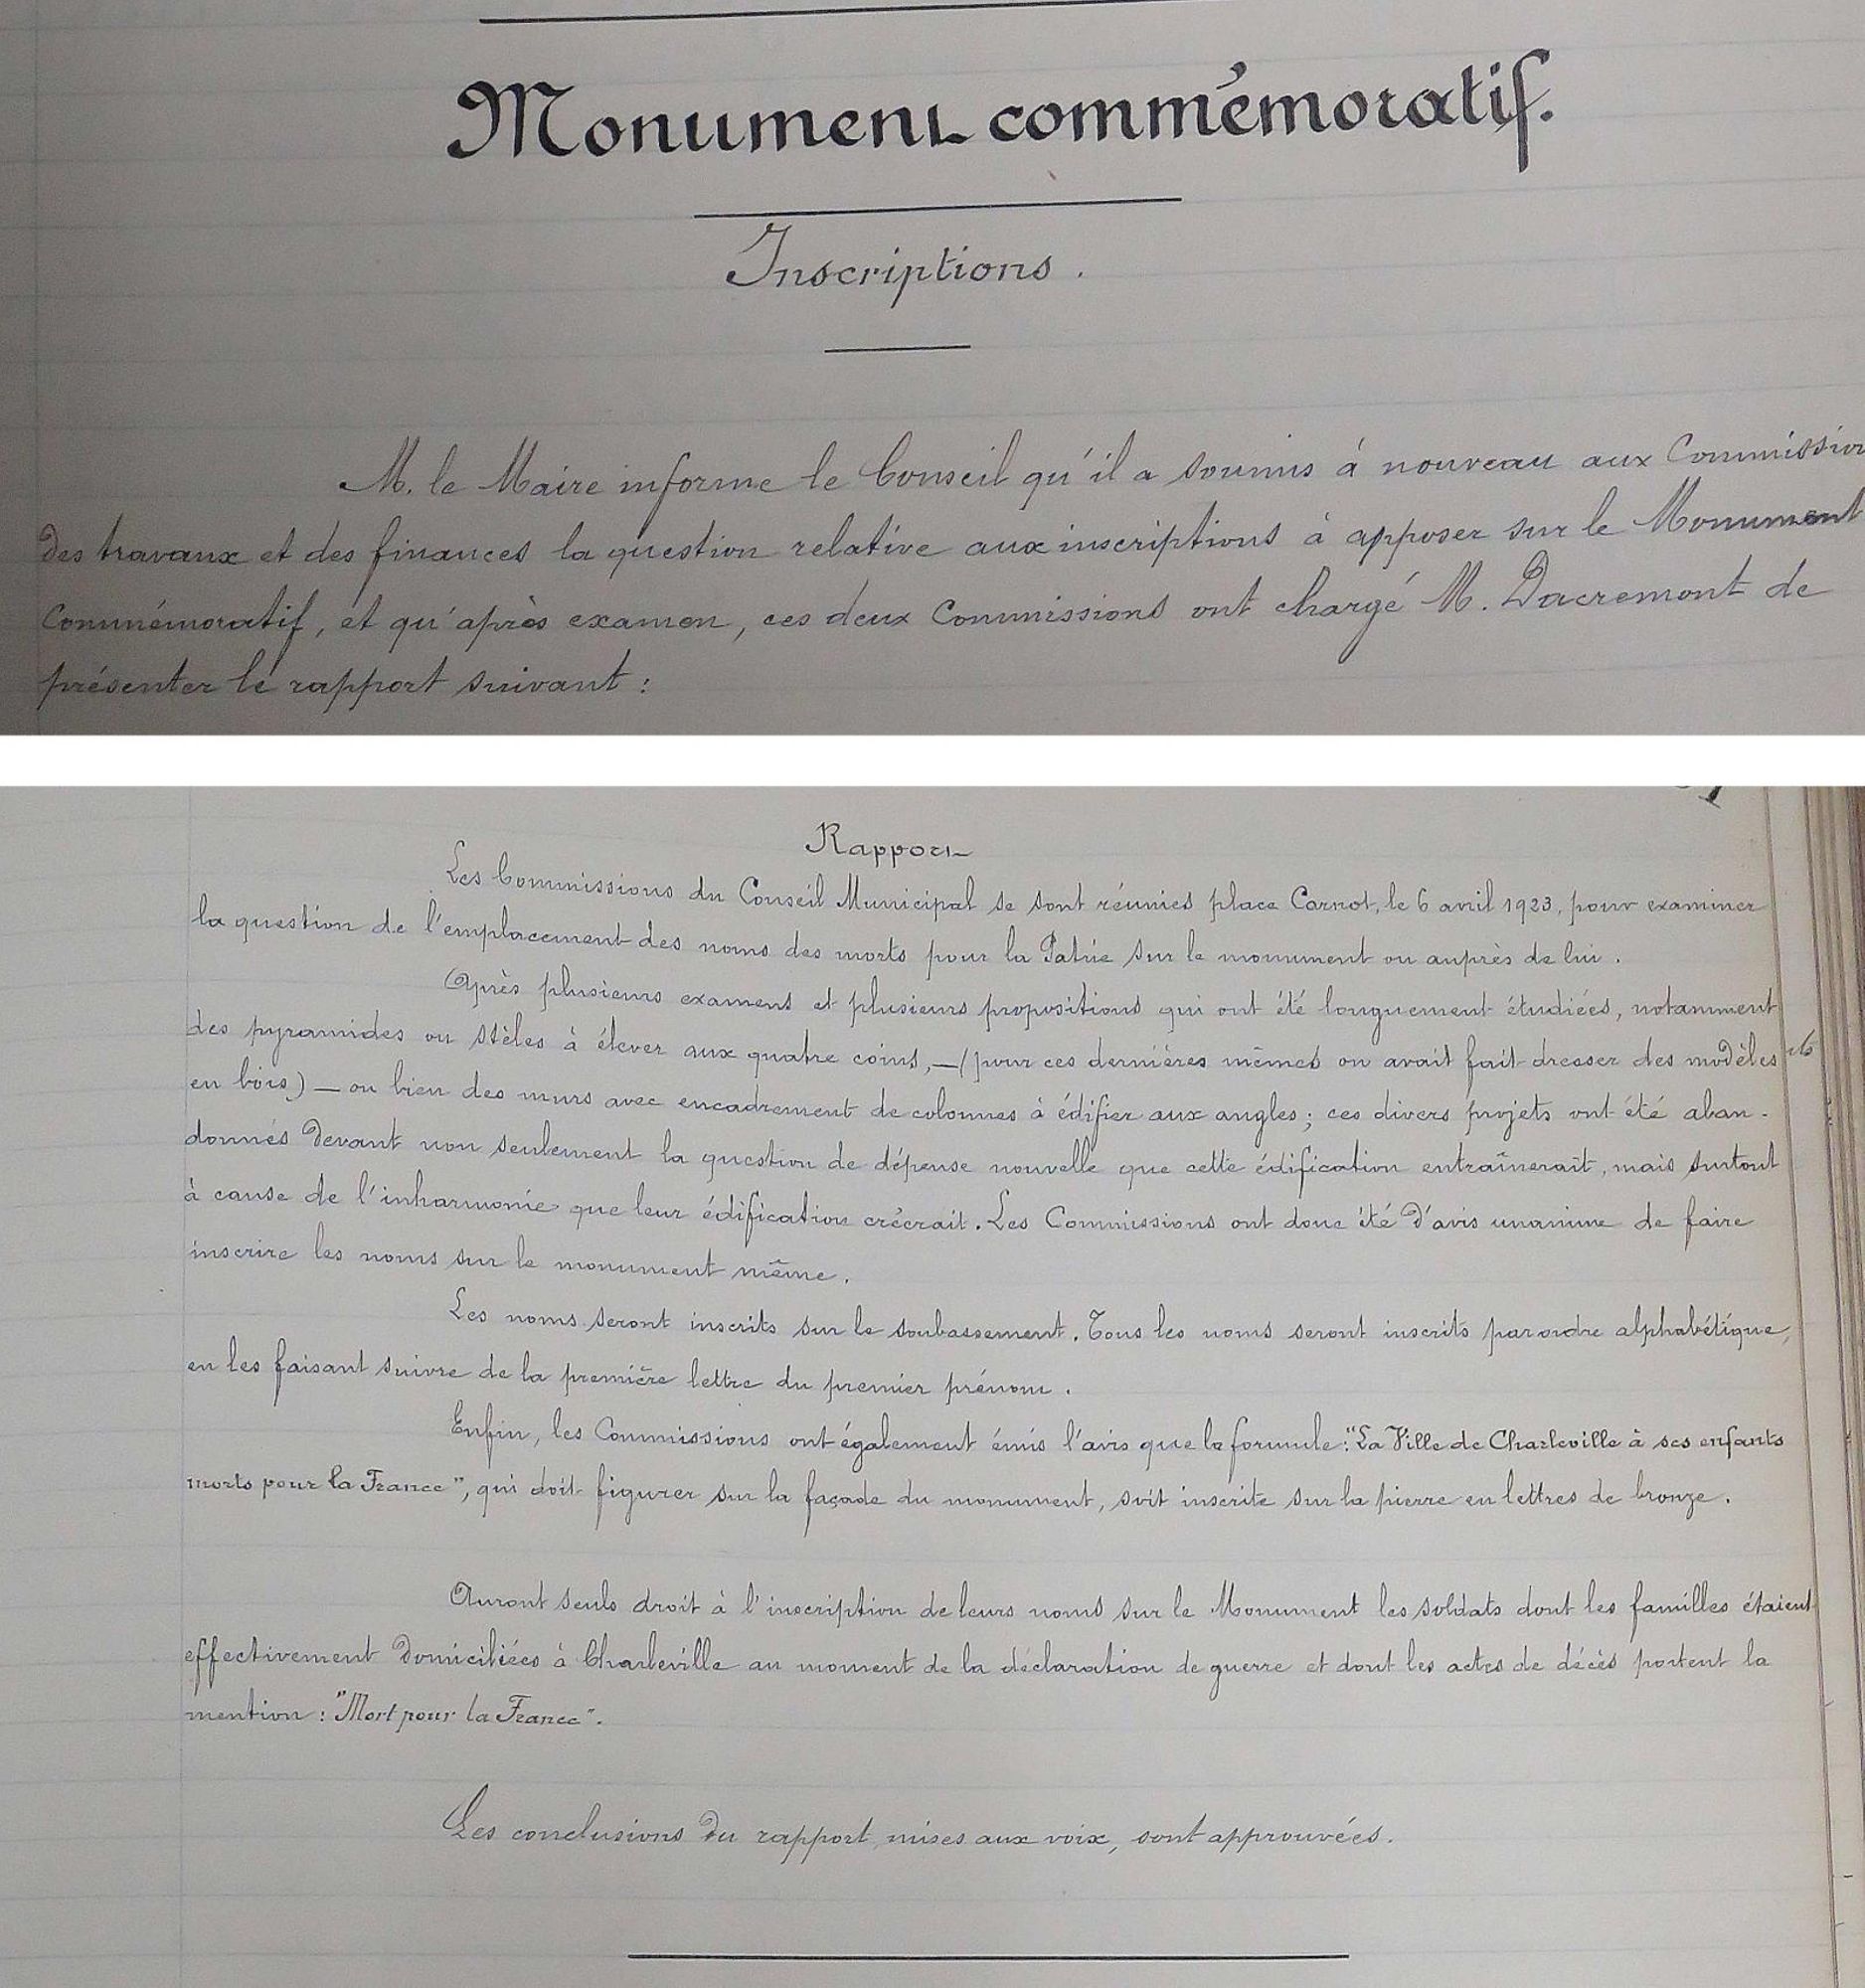 Monument commémoratif.
Inscriptions.
M. le Maire informe le Conseil qu'il a soumis à nouveau aux Commission
des travaux et des finances la question relative aux inscriptions à apposer sur le Monument
Commémoratif, et qu'après examen, ces deux Commissions ont chargé M. Dacremont de
présenter le rapport suivant :
Rapport
Les Commissions du Conseil Municipal se sont réunies place Carnot, le 6 avril 1923, pour examiner
la question de l'emplacement des noms des morts pour la Patrie sur le monument ou auprès de lui.
Après plusieurs examens et plusieurs propositions qui ont été longuement étudiées, notamment
des pyramides ou stèles à élever aux quatre coins, — (pour ces dernières mêmes on avait fait dresser des modèles
en bois) — ou bien des murs avec encadrement de colonnes à édifier aux angles ; ces divers projets ont été aban-
donnés devant non seulement la question de dépense nouvelle que cette édification entraînerait, mais surtout
à cause de l'inharmonie que leur édification créerait. Les Commissions ont donc été d'avis unanime de faire
inscrire les noms sur le monument même.
Les noms seront inscrits sur le soubassement. Tous les noms seront inscrits par ordre alphabétique,
en les faisant suivre de la première lettre du premier prénom.
Enfin, les Commissions ont également émis l'avis que la formule : "La Ville de Charleville à ses enfants
morts pour la France", qui doit figurer sur la façade du monument, soit inscrite sur la pierre en lettres de bronze.
Auront seuls droit à l'inscription de leurs noms sur le Monument les soldats dont les familles étaient
effectivement domiciliées à Charleville au moment de la déclaration de guerre et dont les actes de décès portent la
mention : "Mort pour la France".
Les conclusions du rapport, mises aux voix, sont approuvées.